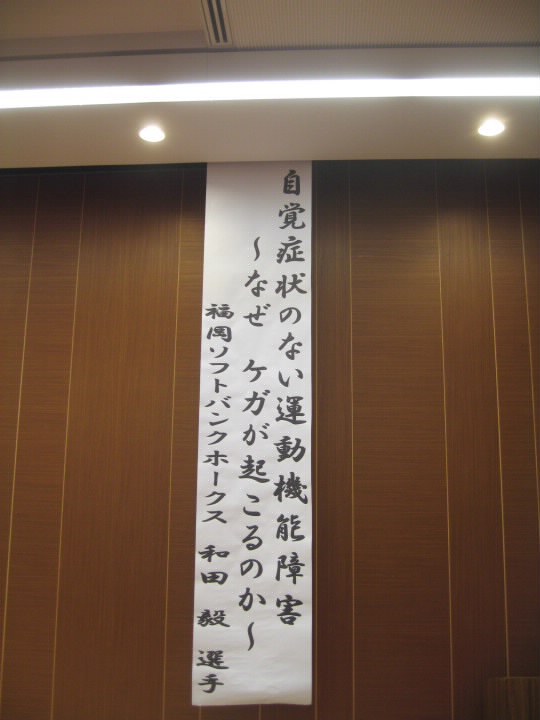 自覚症状のない運動機能障害
～なぜ ケガが起こるのか～
福岡ソフトバンクホークス 和田 毅 選手